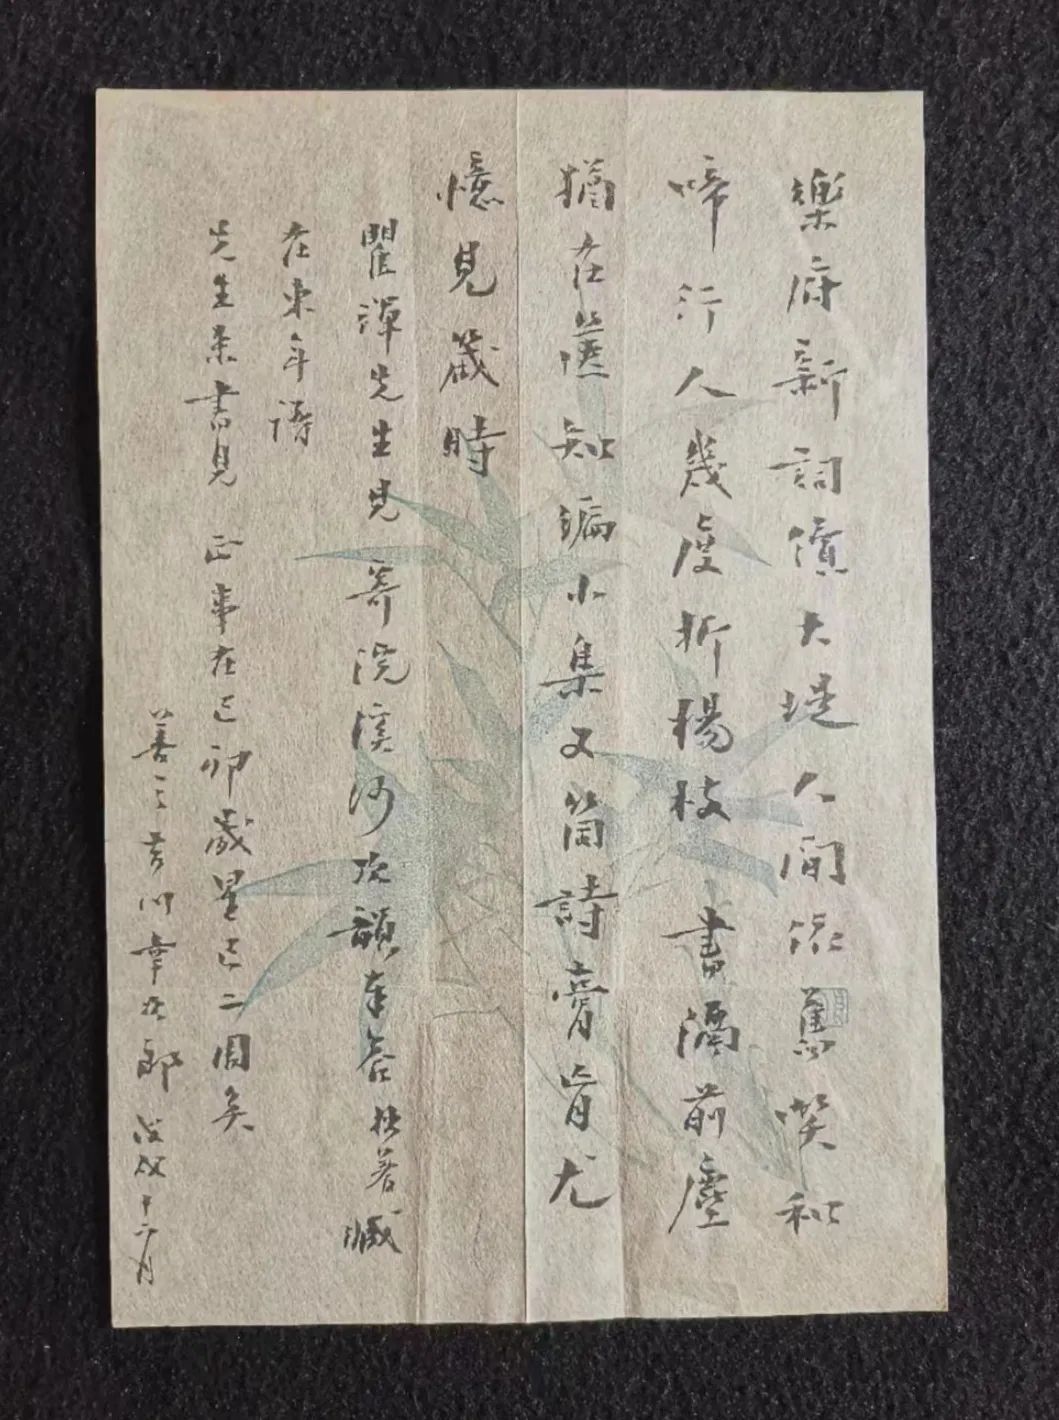 樂府新詞償大堤人間依舊喫和
啼行人幾度折楊枝 書酒前塵
猶在蓬知編小集又箇詩膏肓尤
憶見箴時
瞿潭先生見寄浣溪沙次韻奉答拙著臧
在東年譜
先生來書見正事在己卯歲星已二周矣
善之吉川幸次郎 十二月